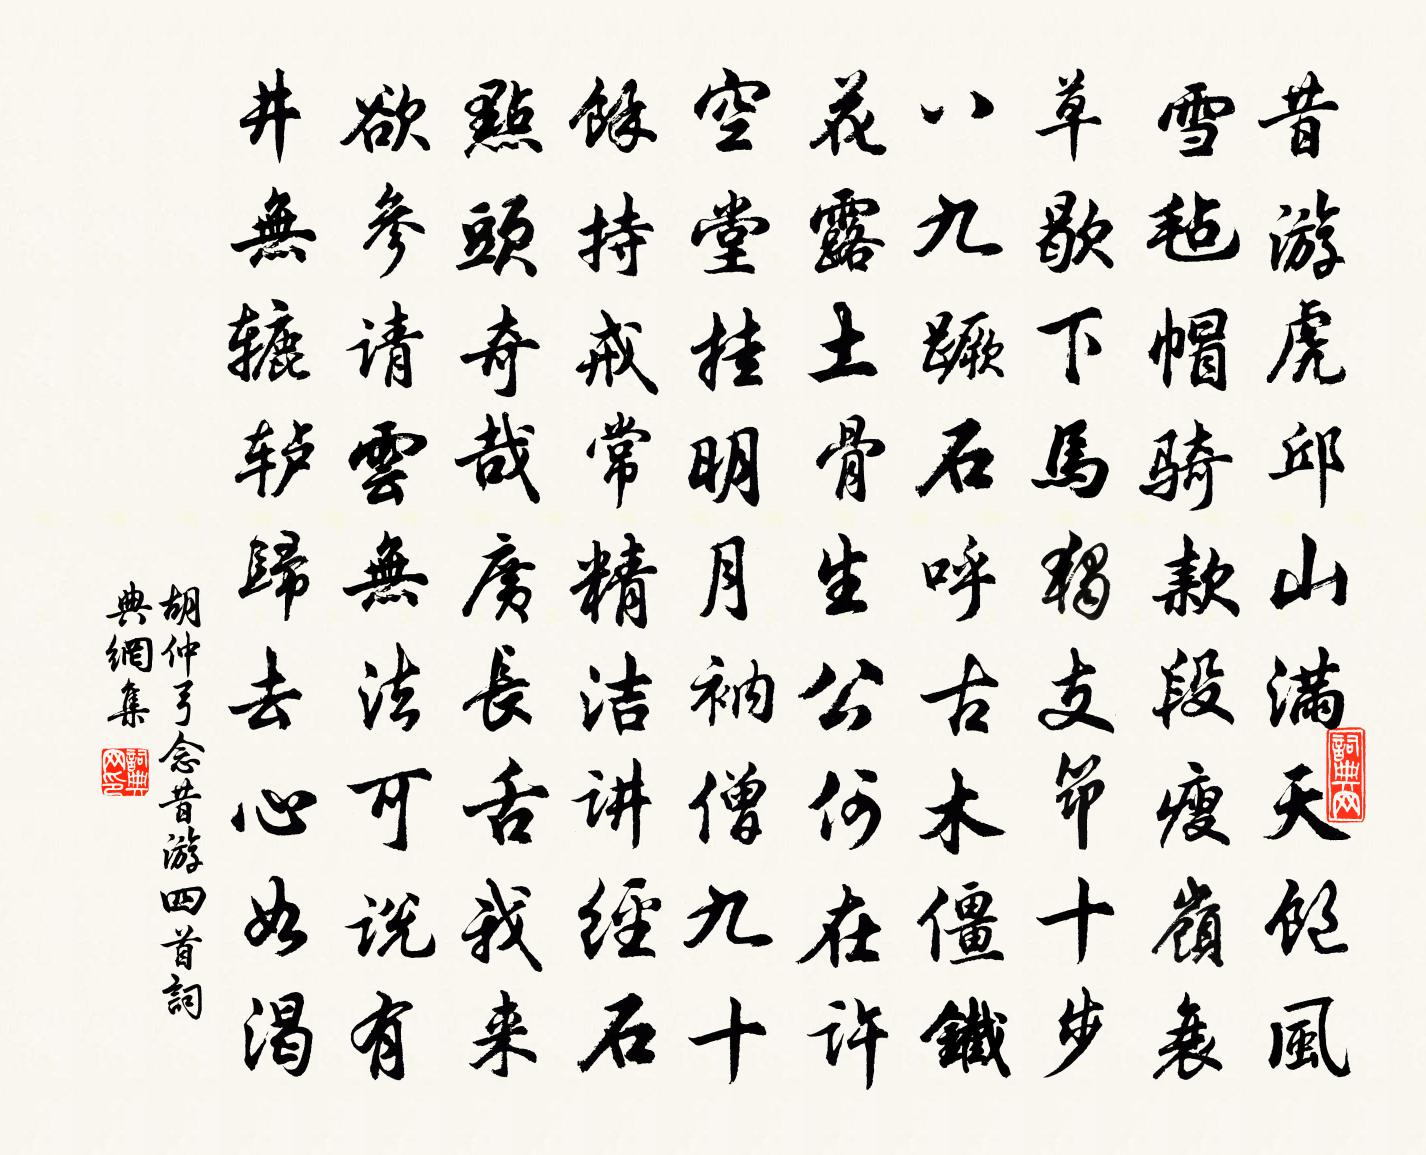 昔游虎邱山满天飽風
雪毡帽骑款段瘦嶺衰
草歇下馬独支笻十步
八九蹶石呼古木僵鐵
花露土骨生公何在许
空堂挂明月衲僧九十
餘持戒常精洁讲經石
點頭奇哉廣長舌我来
欲參请雲無法可说有
井無辘轳歸去心如渴
胡仲弓念昔游四首詞
典網集
詞典网
詞典网印